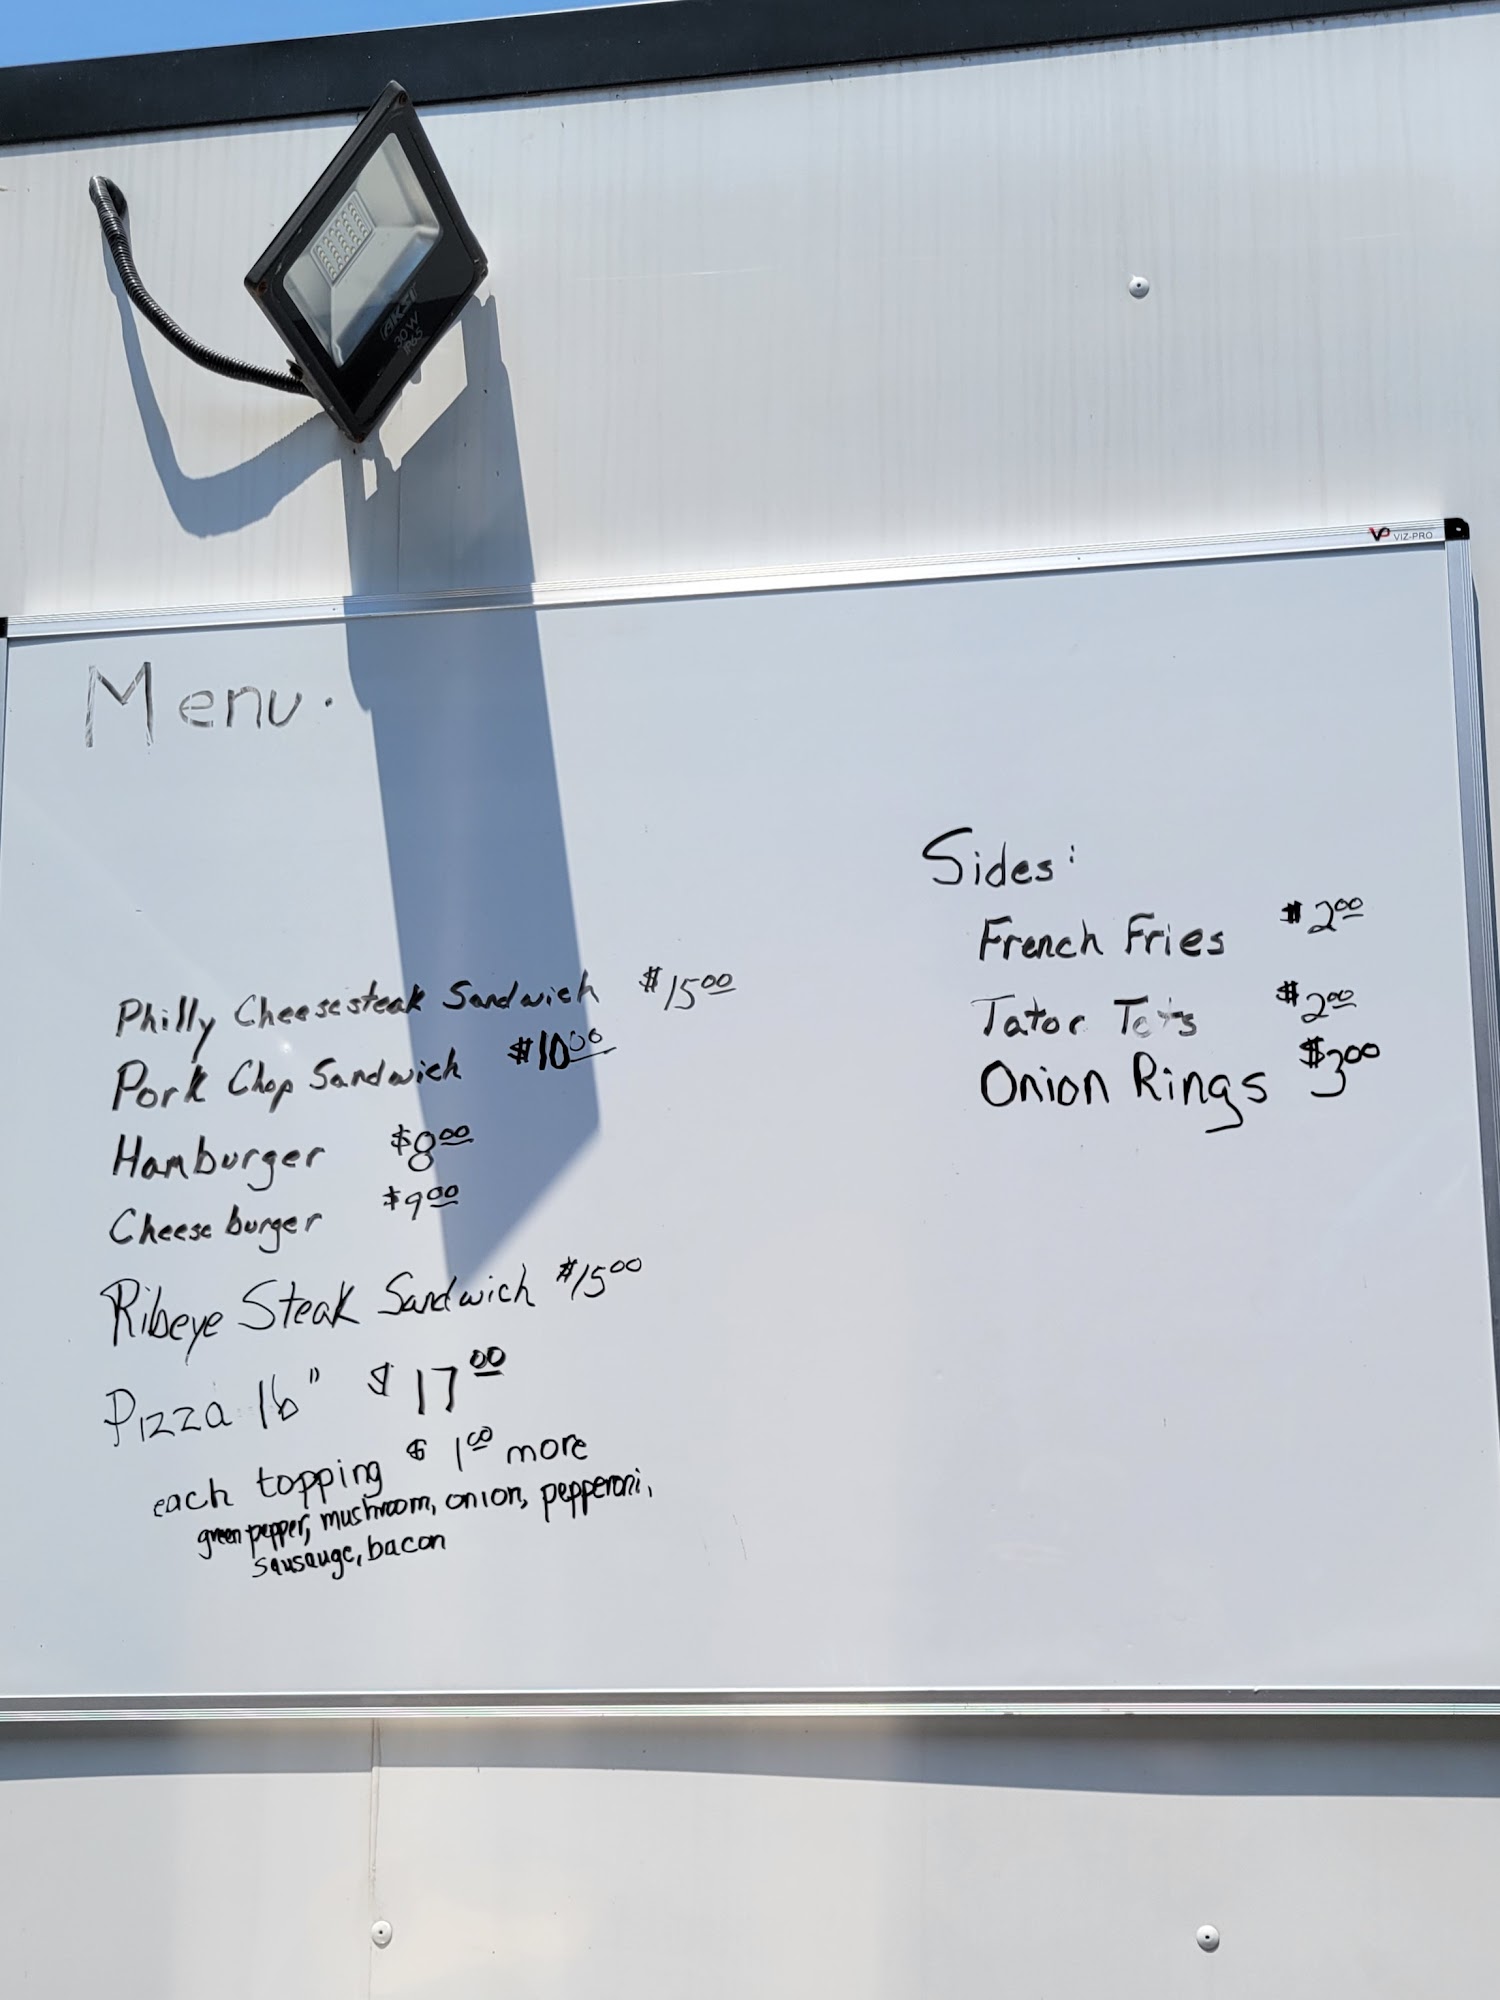 AKSI
30W
IP65
VP VIZ-PRO
Menu.
Philly Cheesesteak Sandwich $15.00
Pork Chop Sandwich $10.00
Hamburger $8.00
Cheese burger $9.00
Ribeye Steak Sandwich $15.00
Pizza 16" $17.00
each topping $1.00 more
green pepper, mushroom, onion, pepperoni,
sausauge, bacon
Sides:
French Fries $2.00
Tator Tots $2.00
Onion Rings $3.00